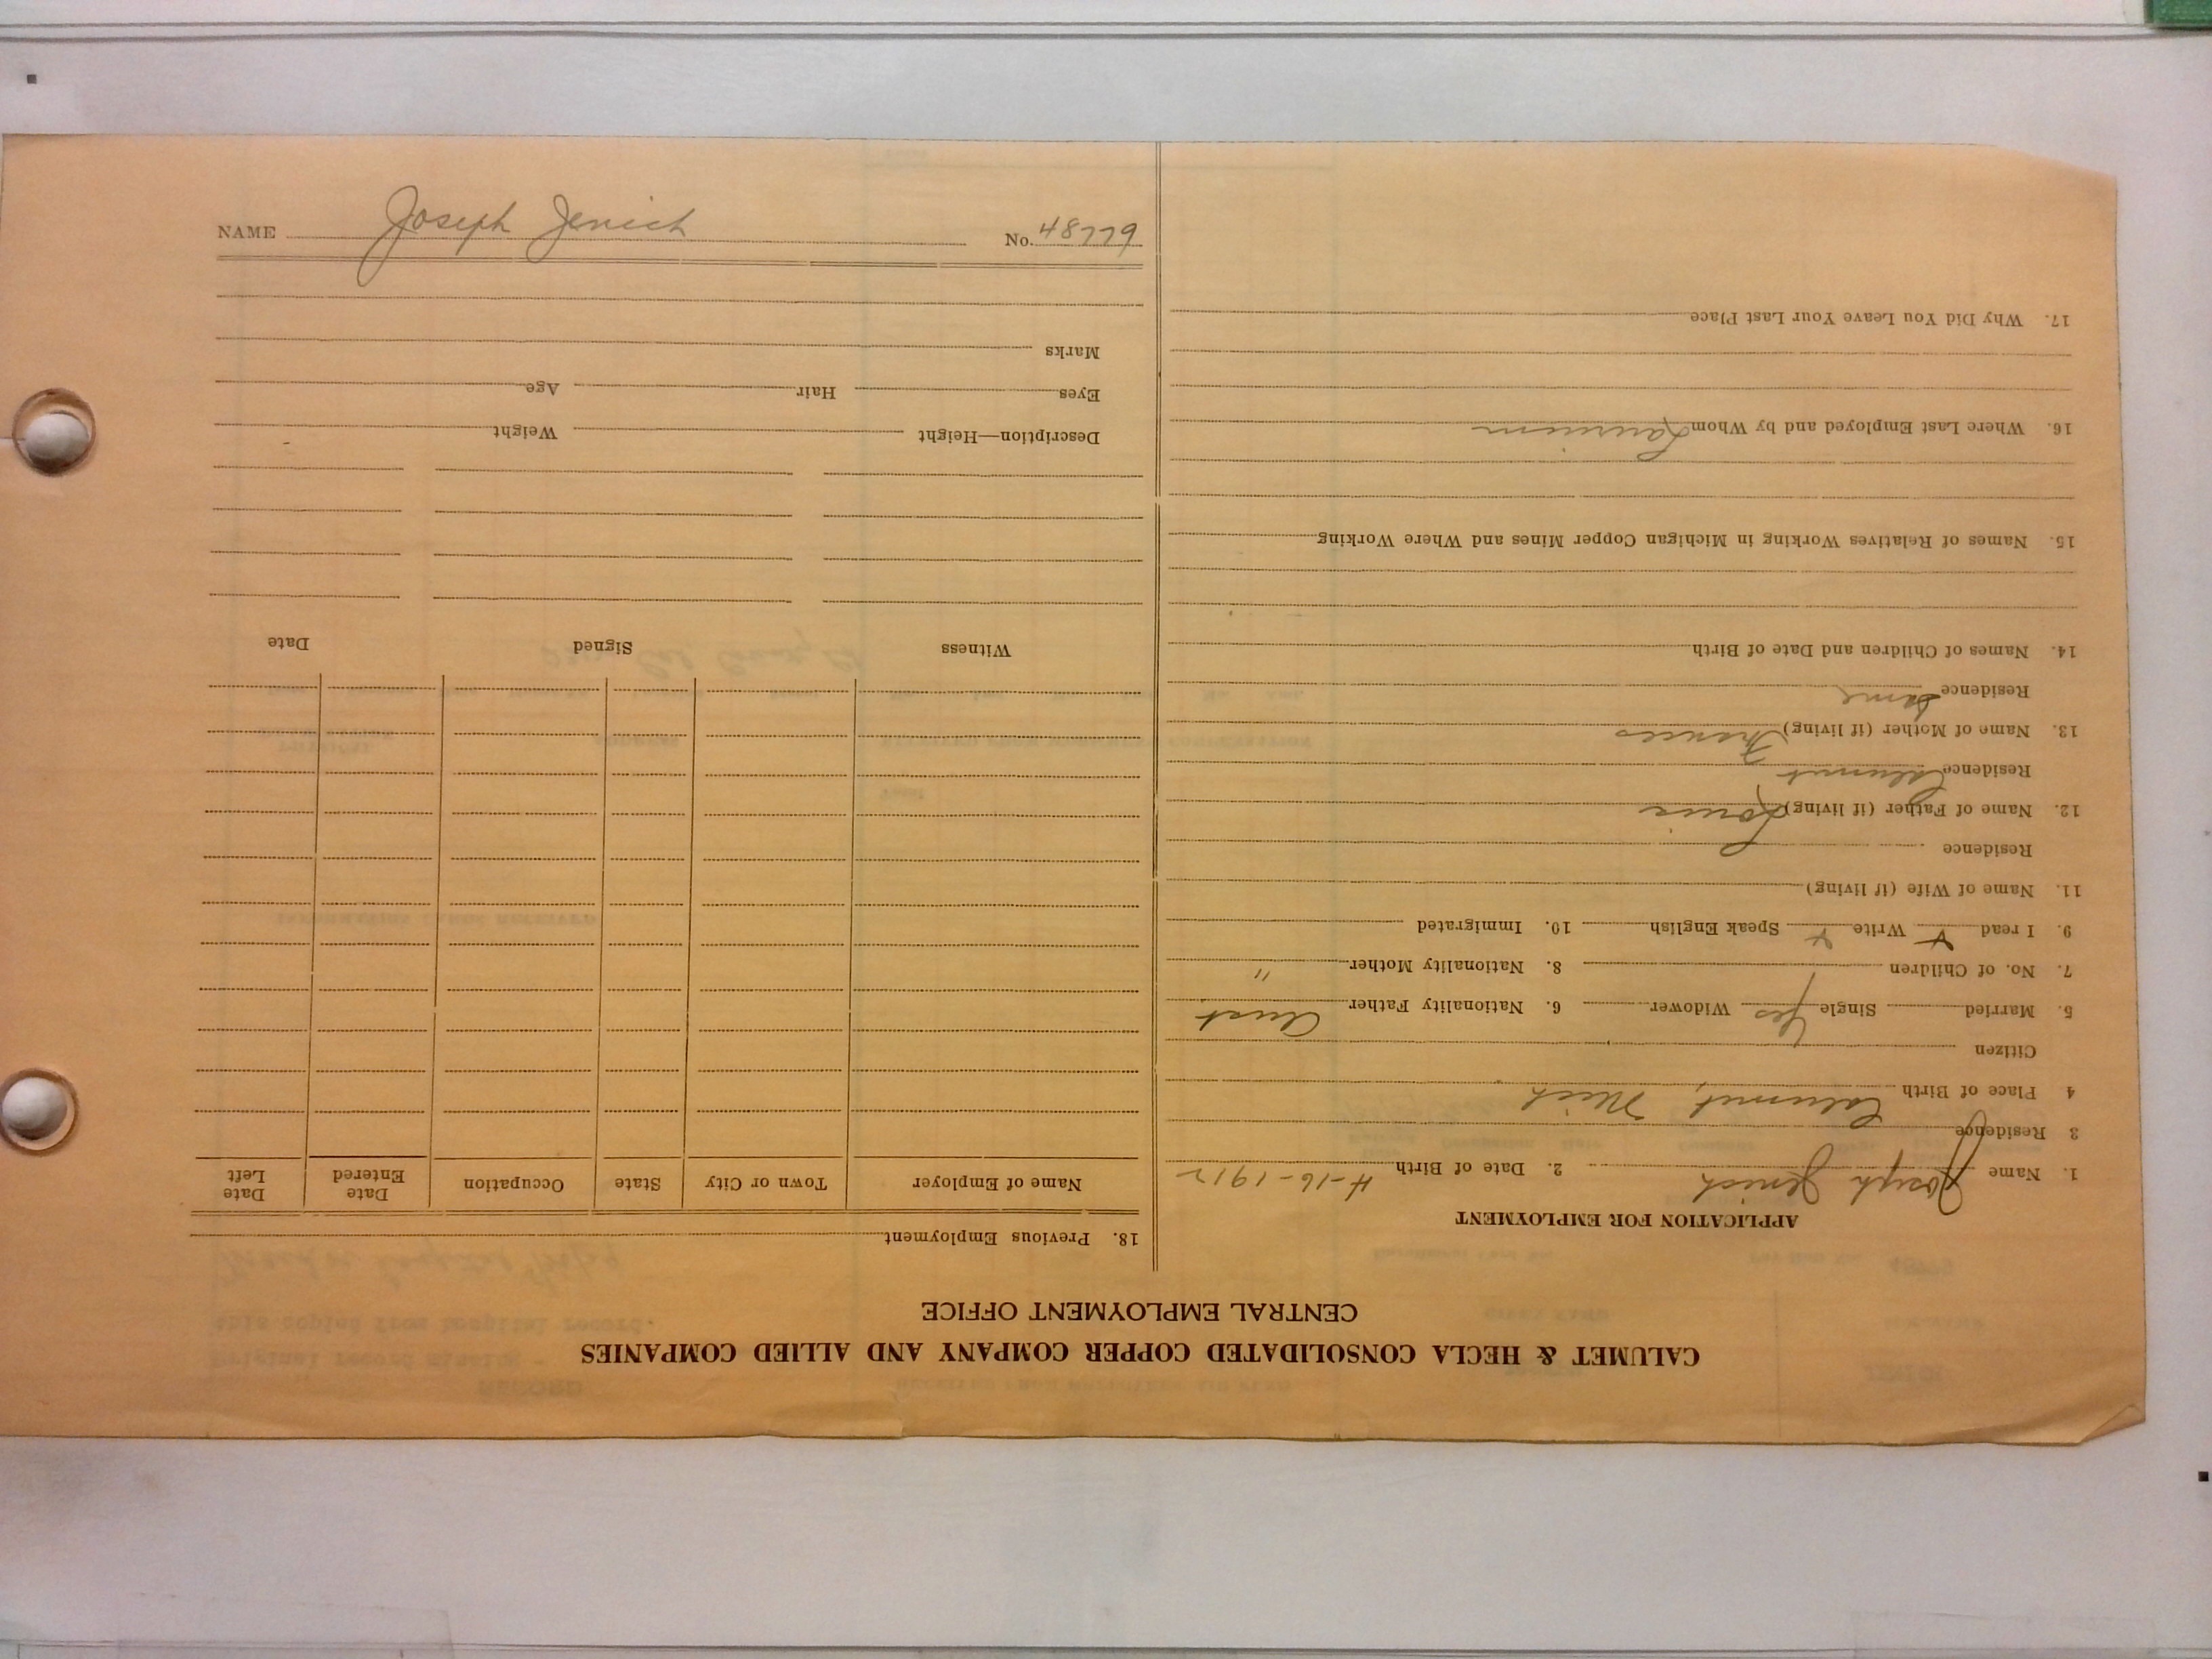 CALUMET & HECLA CONSOLIDATED COPPER COMPANY AND ALLIED COMPANIES
CENTRAL EMPLOYMENT OFFICE
APPLICATION FOR EMPLOYMENT
1. Name Joseph Jenich 2. Date of Birth 4-16-1912
3 Residence
4 Place of Birth Calumet, Mich
Citizen
5. Married Single Yes Widower 6. Nationality Father Aust
7. No. of Children 8. Nationality Mother "
9. I read Write Speak English 10. Immigrated
11. Name of Wife (if living)
Residence
12. Name of Father (if living) Louis
Residence Calumet
13. Name of Mother (if living) Frances
Residence Same
14. Names of Children and Date of Birth
15. Names of Relatives Working in Michigan Copper Mines and Where Working
16. Where Last Employed and by Whom Laurium
17. Why Did You Leave Your Last Place
18. Previous Employment
Name of Employer Town or City State Occupation Date Entered Date Left
Witness Signed Date
Description—Height Weight
Eyes Hair Age
Marks
NAME Joseph Jenich No. 48779